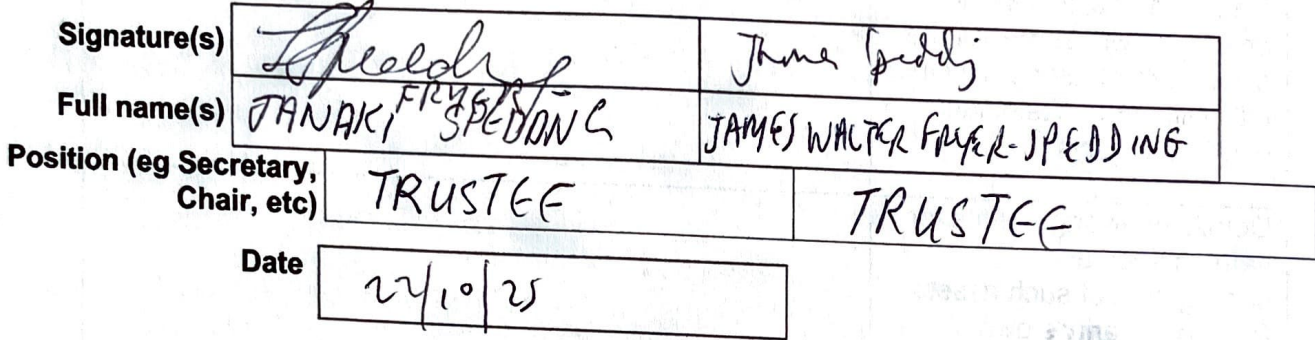 Signature(s) Spedding James Spedding
Full name(s) JANAKI FRYER- SPEDDING JAMES WALTER FRYER-SPEDDING
Position (eg Secretary,
Chair, etc) TRUSTEE TRUSTEE
Date 22/10/25